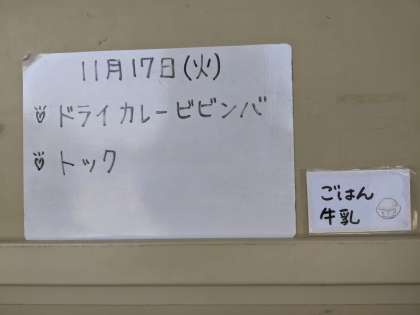 11月17日(火)
ドライカレービビンバ
トック
ごはん
牛乳